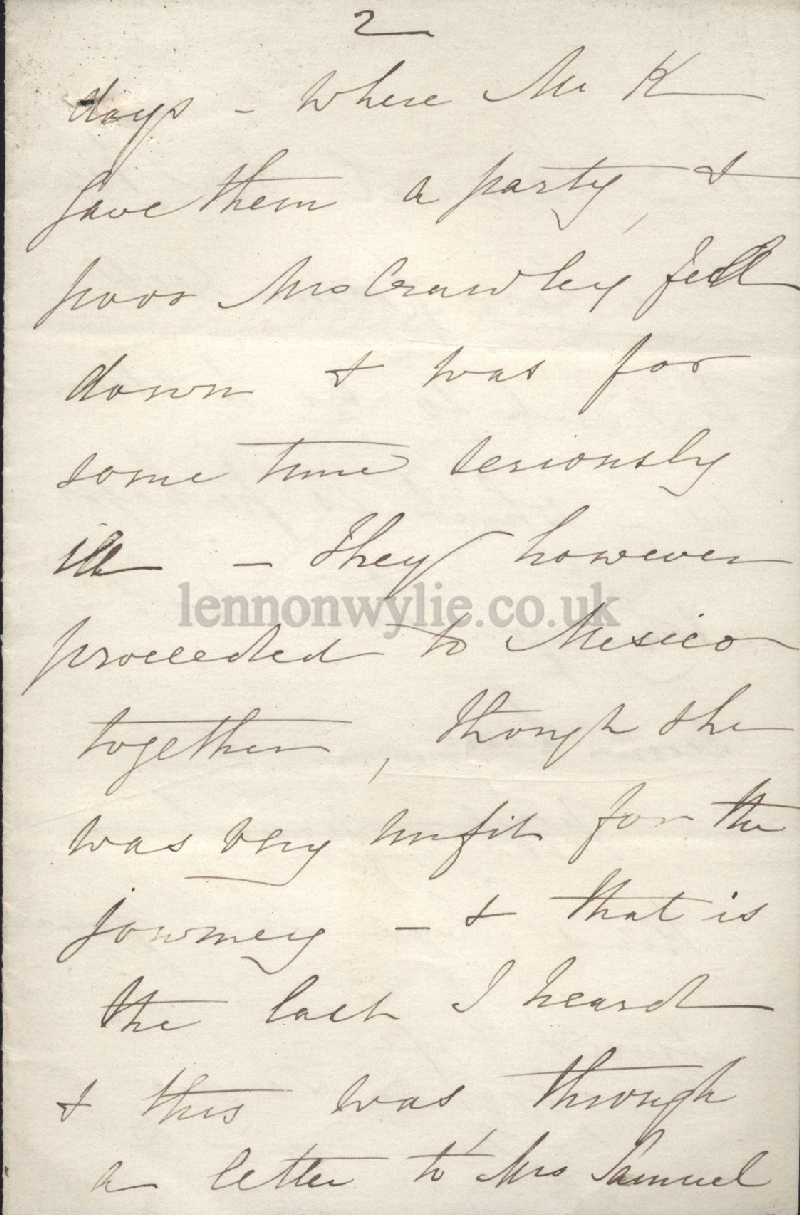 2
days - where Mr K
gave them a party, &
poor Mrs Crawley fell
down & was for
some time seriously
ill - They however
lennonwylie.co.uk
proceeded to Mexico
together, though she
was very unfit for the
journey - & that is
the last I heard
& this was through
a letter to Mrs Samuel